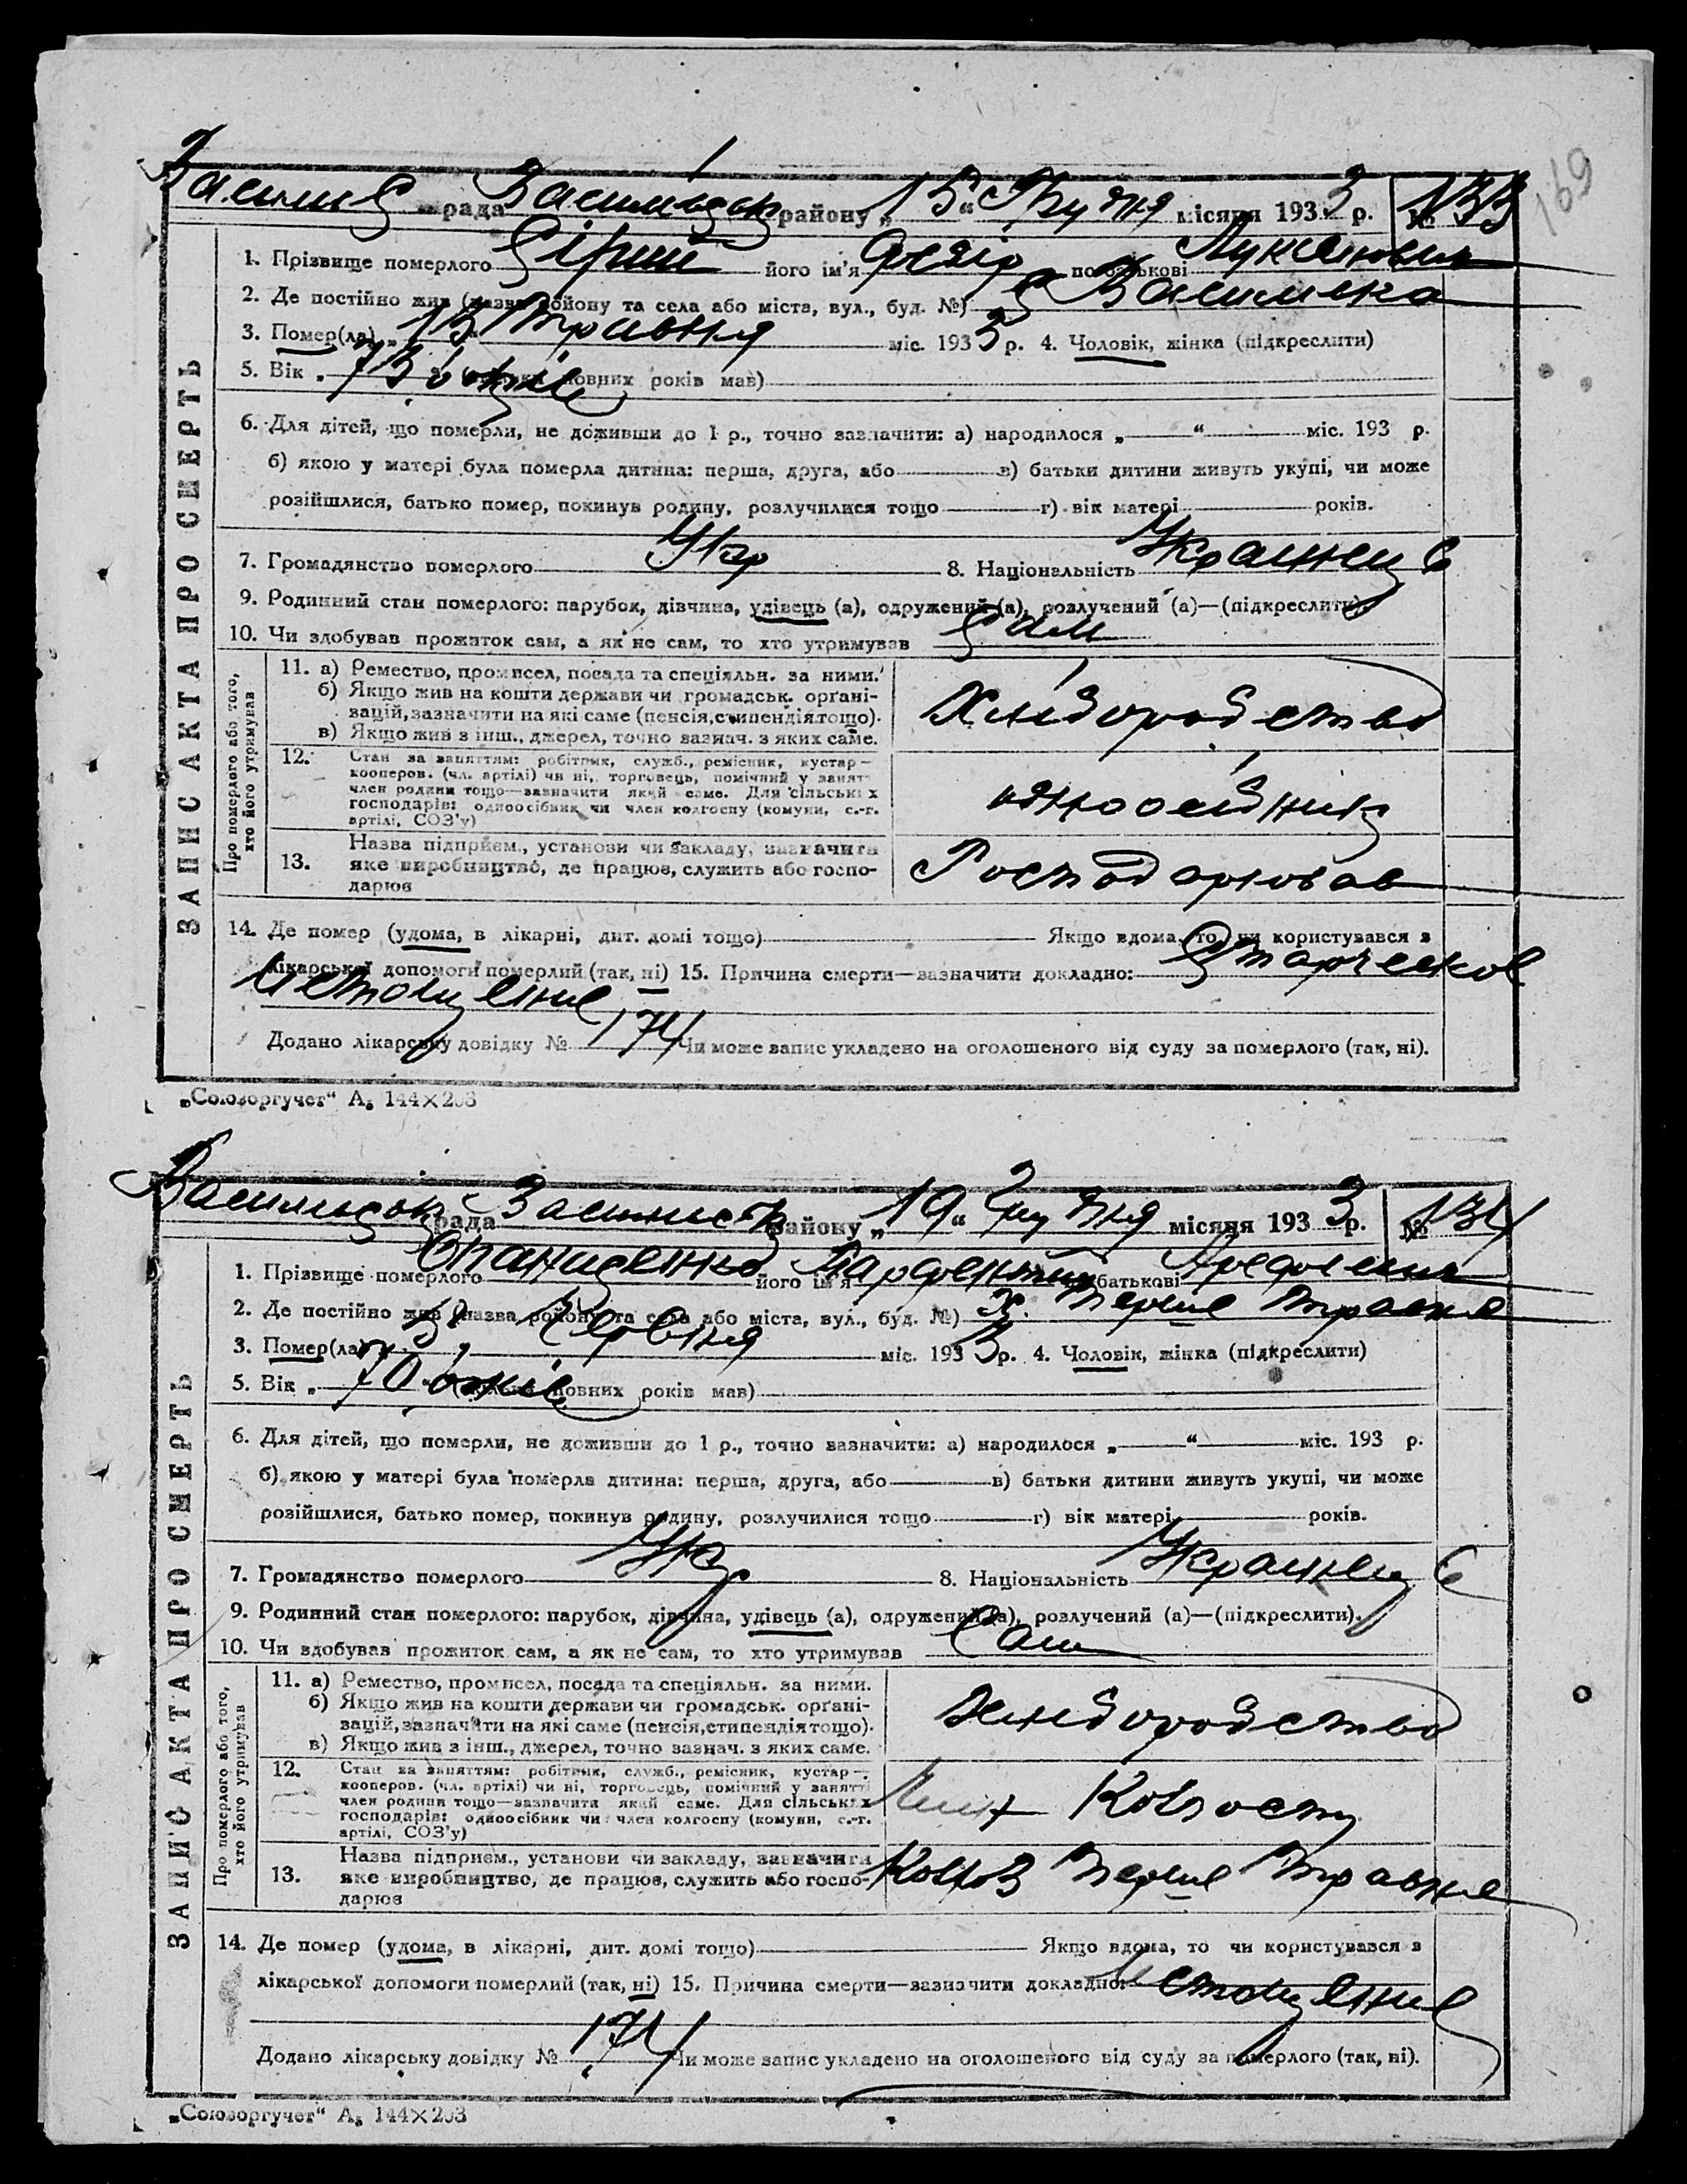 169
рада Васильівськ району „15“ Грудня місяця 1933 р. № 133
ЗАПИС АКТА ПРО СМЕРТЬ
1. Прізвище померлого Сірий його ім'я Федір по батькові
2. Де постійно жив (назва району та села або міста, вул., буд. №) с Василівка
3. Помер(ла) „13“ Травня міс. 1933 р. 4. Чоловік, жінка (підкреслити)
5. Вік „73 років повних років мав)
6. Для дітей, що померли, не доживши до 1 р., точно зазначити: а) народилося „ “ міс. 193 р.
б) якою у матері була померла дитина: перша, друга, або в) батьки дитини живуть укупі, чи може
розійшлися, батько помер, покинув родину, розлучилися тощо г) вік матері років.
7. Громадянство померлого Укр 8. Національність Украинец
9. Родинний стан померлого: парубок, дівчина, удівець (а), одружений (а), розлучений (а)—(підкреслити).
10. Чи здобував прожиток сам, а як не сам, то хто утримував Сам
Про померлого або того, хто його утримував
11. а) Ремество, промисел, посада та спеціяльн. за ними.
б) Якщо жив на кошти держави чи громадськ. орґані-
зацій, зазначити на які саме (пенсія, стипендія тощо).
в) Якщо жив з інш., джерел, точно зазнач. з яких саме.
Хліборобство
12. Стан за заняттям: робітник, служб., ремісник, кустар—
кооперов. (чл. артілі) чи ні, торговець, помічний у занятт
член родини тощо—зазначити який саме. Для сільських
господарів: одноосібник чи член колгоспу (комуни, с.-г.
артілі, СОЗ'у)
одноосібник
13. Назва підприєм., установи чи закладу, зазначити
яке виробництво, де працює, служить або госпо-
дарює
Господарював
14. Де помер (удома, в лікарні, дит. домі тощо) Якщо вдома, то чи користувався з
лікарської допомоги померлий (так, ні) 15. Причина смерти—зазначити докладно: Старческое
Истощение
Додано лікарську довідку № 174 Чи може запис укладено на оголошеного від суду за померлого (так, ні).
„Союзоргучет“ А₅ 144×203
рада району „19“ Грудня місяця 1933 р. № 134
ЗАПИС АКТА ПРО СМЕРТЬ
1. Прізвище померлого Опанасенко його ім'я Парфентий батькові
2. Де постійно жив (назва району та села або міста, вул., буд. №) х. Перше Травня
3. Помер(ла) Червня міс. 1933 р. 4. Чоловік, жінка (підкреслити)
5. Вік „70 років повних років мав)
6. Для дітей, що померли, не доживши до 1 р., точно зазначити: а) народилося „ “ міс. 193 р.
б) якою у матері була померла дитина: перша, друга, або в) батьки дитини живуть укупі, чи може
розійшлися, батько помер, покинув родину, розлучилися тощо г) вік матері років.
7. Громадянство померлого Укр 8. Національність Украинец
9. Родинний стан померлого: парубок, дівчина, удівець (а), одружений (а), розлучений (а)—(підкреслити).
10. Чи здобував прожиток сам, а як не сам, то хто утримував Сам
Про померлого або того, хто його утримував
11. а) Ремество, промисел, посада та спеціяльн. за ними.
б) Якщо жив на кошти держави чи громадськ. орґані-
зацій, зазначити на які саме (пенсія, стипендія тощо).
в) Якщо жив з інш., джерел, точно зазнач. з яких саме.
Хліборобство
12. Стан за заняттям: робітник, служб., ремісник, кустар—
кооперов. (чл. артілі) чи ні, торговець, помічний у занятті
член родини тощо—зазначити який саме. Для сільських
господарів: одноосібник чи член колгоспу (комуни, с.-г.
артілі, СОЗ'у)
Член Колгоспу
13. Назва підприєм., установи чи закладу, зазначити
яке виробництво, де працює, служить або госпо-
дарює
Колхоз Перше Травня
14. Де помер (удома, в лікарні, дит. домі тощо) Якщо вдома, то чи користувався з
лікарської допомоги померлий (так, ні) 15. Причина смерти—зазначити докладно: Истощение
Додано лікарську довідку № 174 Чи може запис укладено на оголошеного від суду за померлого (так, ні).
„Союзоргучет“ А₅ 144×203